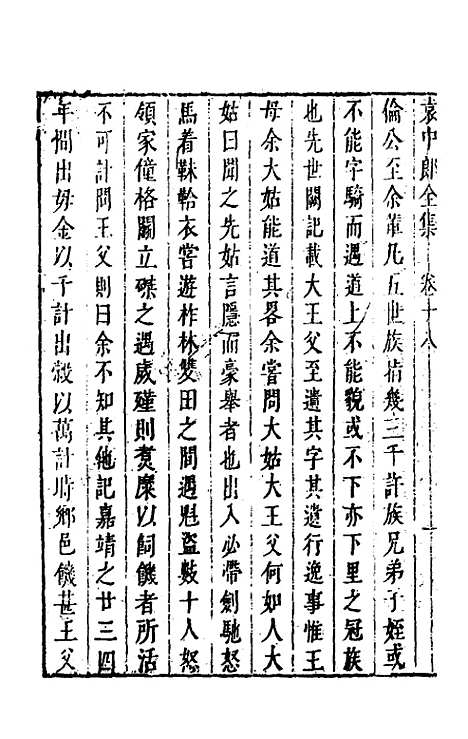 袁中郎全集　卷十八
倫公至余輩凡五世族指幾三千許族兄弟子姪或
不能字騎而遇道上不能貌或不下亦下里之冠族
也先世闕記載大王父至遺其字其遺行逸事惟王
母余大姑能道其畧余嘗問大姑大王父何如人大
姑曰聞之先姑言隱而豪舉者也出入必帶劍馳怒
馬着靺鞈衣嘗遊柞林雙田之間遇劇盜數十人怒
領家僮格鬬立磔之遇歲殣則煑糜以飼饑者所活
不可計問王父則曰余不知其他記嘉靖之廿三四
年間出毋金以千計出穀以萬計時鄉邑饑甚王父